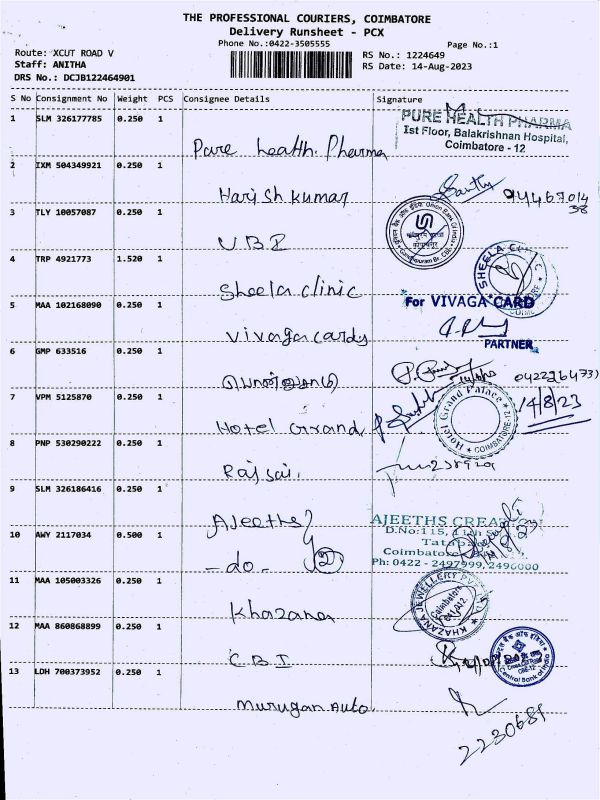 THE PROFESSIONAL COURIERS, COIMBATORE
Delivery Runsheet - PCX
Phone No.:0422-3505555
Page No.:1
Route: XCUT ROAD V
RS No.: 1224649
Staff: ANITHA
RS Date: 14-Aug-2023
DRS No.: DCJB122464901
S No Consignment No Weight PCS Consignee Details Signature
1 SLM 326177785 0.250 1
PURE HEALTH PHARMA
Ist Floor, Balakrishnan Hospital,
Coimbatore - 12
Pure health. Pharma
2 IXM 504349921 0.250 1
Harish kumar
3 TLY 10057087 0.250 1
UBI
4 TRP 4921773 1.520 1
Sheela clinic
SHEELA
5 MAA 102168090 0.250 1
For VIVAGA CARD
PARTNER
Vivaga cards
6 GMP 633516 0.250 1
7 VPM 5125870 0.250 1
14/8/23
Hotel Grand
Hotel Grand Palace
COIMBATORE-12
8 PNP 530290222 0.250 1
Raj sai.
9 SLM 326186416 0.250 1
Ajeeths
AJEETHS
D.No:115,
Coimbatore
Ph: 0422 - 2497999, 2496000
10 AWY 2117034 0.500 1
- do - 2
11 MAA 105003326 0.250 1
Khazana
KHAZANA JEWELLERY
12 MAA 860868899 0.250 1
CBI
Central Bank of India
13 LDH 700373952 0.250 1
Murugan Auto
2230681